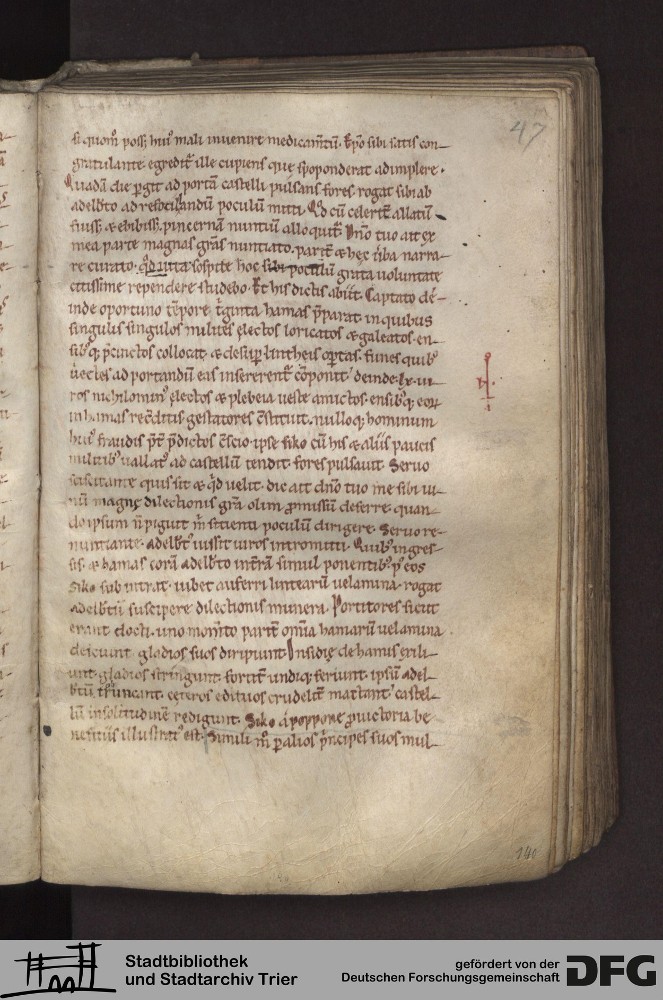 47
si quom̄ poss& hui᷒ mali inuenire medicam̄tū. Ep̄o sibi satis con-
gratulante. egredit᷑ ille cupiens que sp̄oponderat adimplere.
Quadā die p̱git ad portā castelli pulsans fores. rogat sibi ab
adelb̄to ad refocilandū poculū mitti. Q̊d cū celerit̄ allatū
fuiss& & ebibiss&. pincernā nuntiū alloquit᷑. Dn̄o tuo ait ex
mea parte magnas grās nuntiato. parit̄ & hęc ūba narra-
re curato. q̊d uita sospite hoc sibi poculū grata uoluntate
citissime rependere studebo. Et his dictis abiit. Captato dē-
inde oportuno tēpore tⁱginta hamas p̄parat. in quibus
singulis singulos milites electos loricatos & galeatos. en-
sibꝰqꝫ p̄cinctos collocat. & desup̱ lintheis op̱tas. funes quibꝰ
uectes ad portandū eas insererent᷑ cōponit. deinde lx. ui-
ros nichilominꝰ electos & plebeia ueste amictos. ensibꝰqꝫ eoꝝ
in hamas recditis gestatores cstituit. nulloqꝫ hominum
huiꝰ fraudis p̄t̄ p̄dictos cscio. ipse siko cū his & aliis paucis
militibꝰ uallatꝰ ad castellū tendit. fores pulsauit. Seruo
sciscitante quis sit & q̊d uelit. dic ait dn̄o tuo me sibi ui-
nū magnę dilectionis grā. olim promissū deferre. quan-
do ipsum n̄ piguit m̄ sitienti poculū dirigere. Seruo re-
nuntiante. adelb̄tꝰ iussit uiros intromitti. Quibꝰ ingres-
sis. & hamas corā adelb̄to int̄rā simul ponentibꝰ. p᷒ eos
Siko subintrat. iubet auferri linteariū uelamina. rogat
adelb̄tū suscipere dilectionis munera. Portitores sicut
erant docti. uno mom̄to parit̄ om̄ia hamarū uelamina
deiciunt. gladios suos diripiunt. Insidię de hamis exili-
unt. gladios stringunt. fortit̄ undiqꝫ feriunt. ipsū adel-
b̄tū truncant. cęteros edituos crudelit̄ mactant. castel-
lū in solitudinē redigunt. Siko á poppone pro uictoria be-
neficiis illustratꝰ est. Simili m̊ p̱ alios p̄ncipes suos mul-
140
Stadtbibliothek
und Stadtarchiv Trier
gefördert von der
Deutschen Forschungsgemeinschaft
DFG